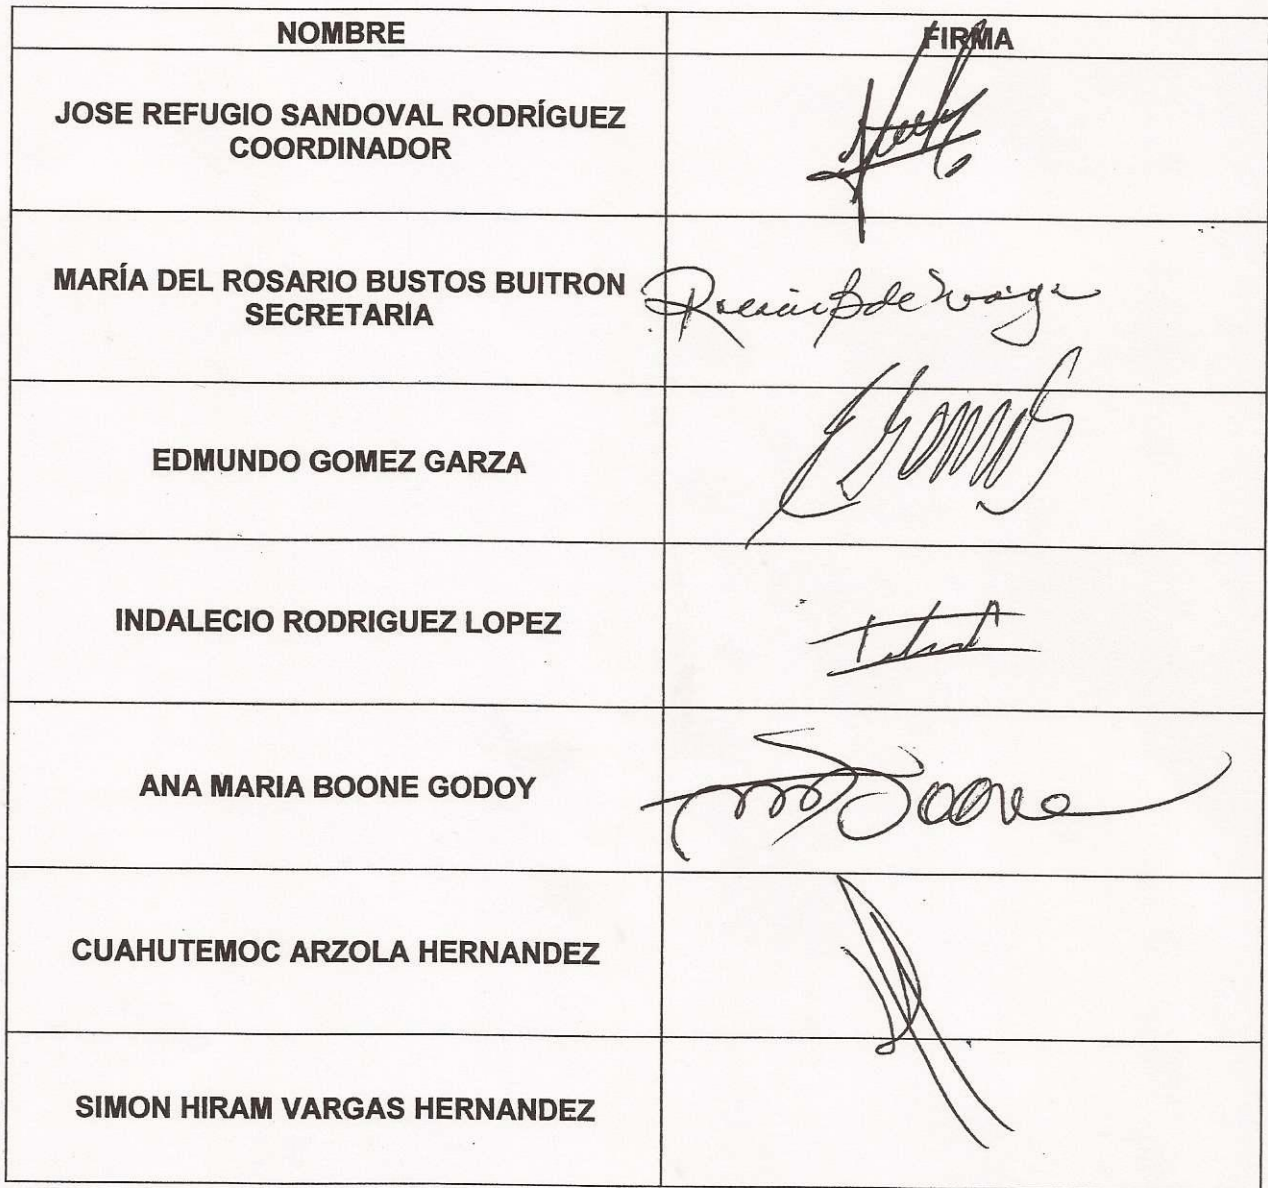 NOMBRE
FIRMA
JOSE REFUGIO SANDOVAL RODRÍGUEZ
COORDINADOR
MARÍA DEL ROSARIO BUSTOS BUITRON
SECRETARIA
EDMUNDO GOMEZ GARZA
INDALECIO RODRIGUEZ LOPEZ
ANA MARIA BOONE GODOY
Boone
CUAHUTEMOC ARZOLA HERNANDEZ
SIMON HIRAM VARGAS HERNANDEZ